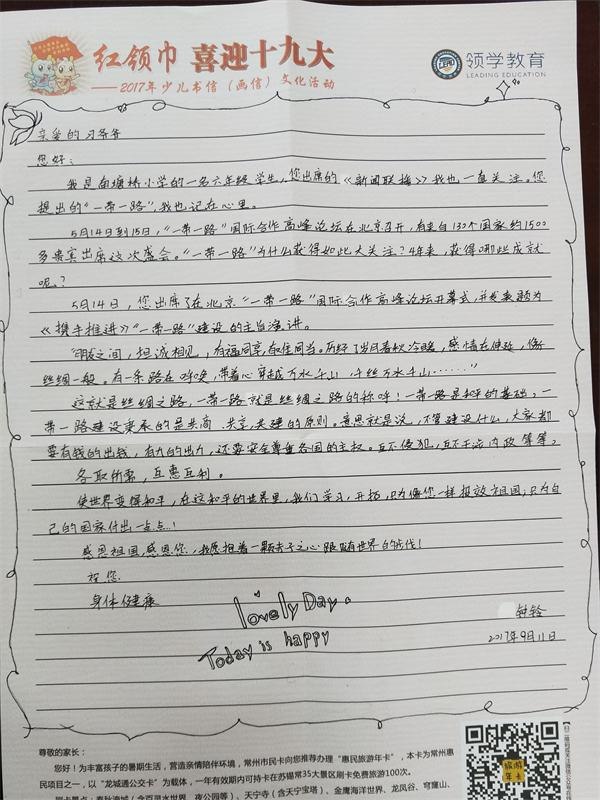 红领巾 喜迎十九大
——2017年少儿书信（画信）文化活动
领学教育
LEADING EDUCATION
亲爱的习爷爷
您好：
我是南塘桥小学的一名六年级学生，您出席的《新闻联播》我也一直关注。您
提出的“一带一路”，我也记在心里。
5月14日到15日，“一带一路”国际合作高峰论坛在北京召开，有来自130个国家约1500
多贵宾出席这次盛会。“一带一路”为什么获得如此大关注？4年来，获得哪些成就
呢？
5月14日，您出席了在北京“一带一路”国际合作高峰论坛开幕式，并发表题为
《携手推进》“一带一路”建设的主旨演讲。
“朋友之间，坦诚相见，有福同享，有难同当。历经了岁月春秋冷暖，感情在伸延，像
丝绸一般。有一条路在呼唤，带着心穿越万水千山，千丝万水千山……”
这就是丝绸之路，一带一路就是丝绸之路的称呼！一带一路是和平的基础，一
带一路建设秉承的是共商、共享、共建的原则。意思就是说，不管建设什么，大家都
要有钱的出钱，有力的出力，还要安全尊重各国的主权。互不侵犯，互不干涉内政等等。
各取所需，互惠互利。
使世界变得和平，在这和平的世界里，我们学习，开拓，只为像您一样报效祖国；只为自
己的国家付出一点点！
感恩祖国，感恩您，我愿抱着一颗赤子之心跟随世界的时代！
祝您
身体健康
lovely Day.
Today is happy
钟铃
2017年9月11日
尊敬的家长：
您好！为丰富孩子的暑期生活，营造亲情陪伴环境，常州市民卡向您推荐办理“惠民旅游年卡”，本卡为常州惠
民项目之一，以“龙城通公交卡”为载体，一年有效期内可持卡在苏锡常35大景区刷卡免费旅游100次。
刷卡景点：春秋淹城（含百灵水世界、夜公园等）、天宁寺（含天宁宝塔）、金鹰海洋世界、龙凤谷、穹窿山、
旅游年卡